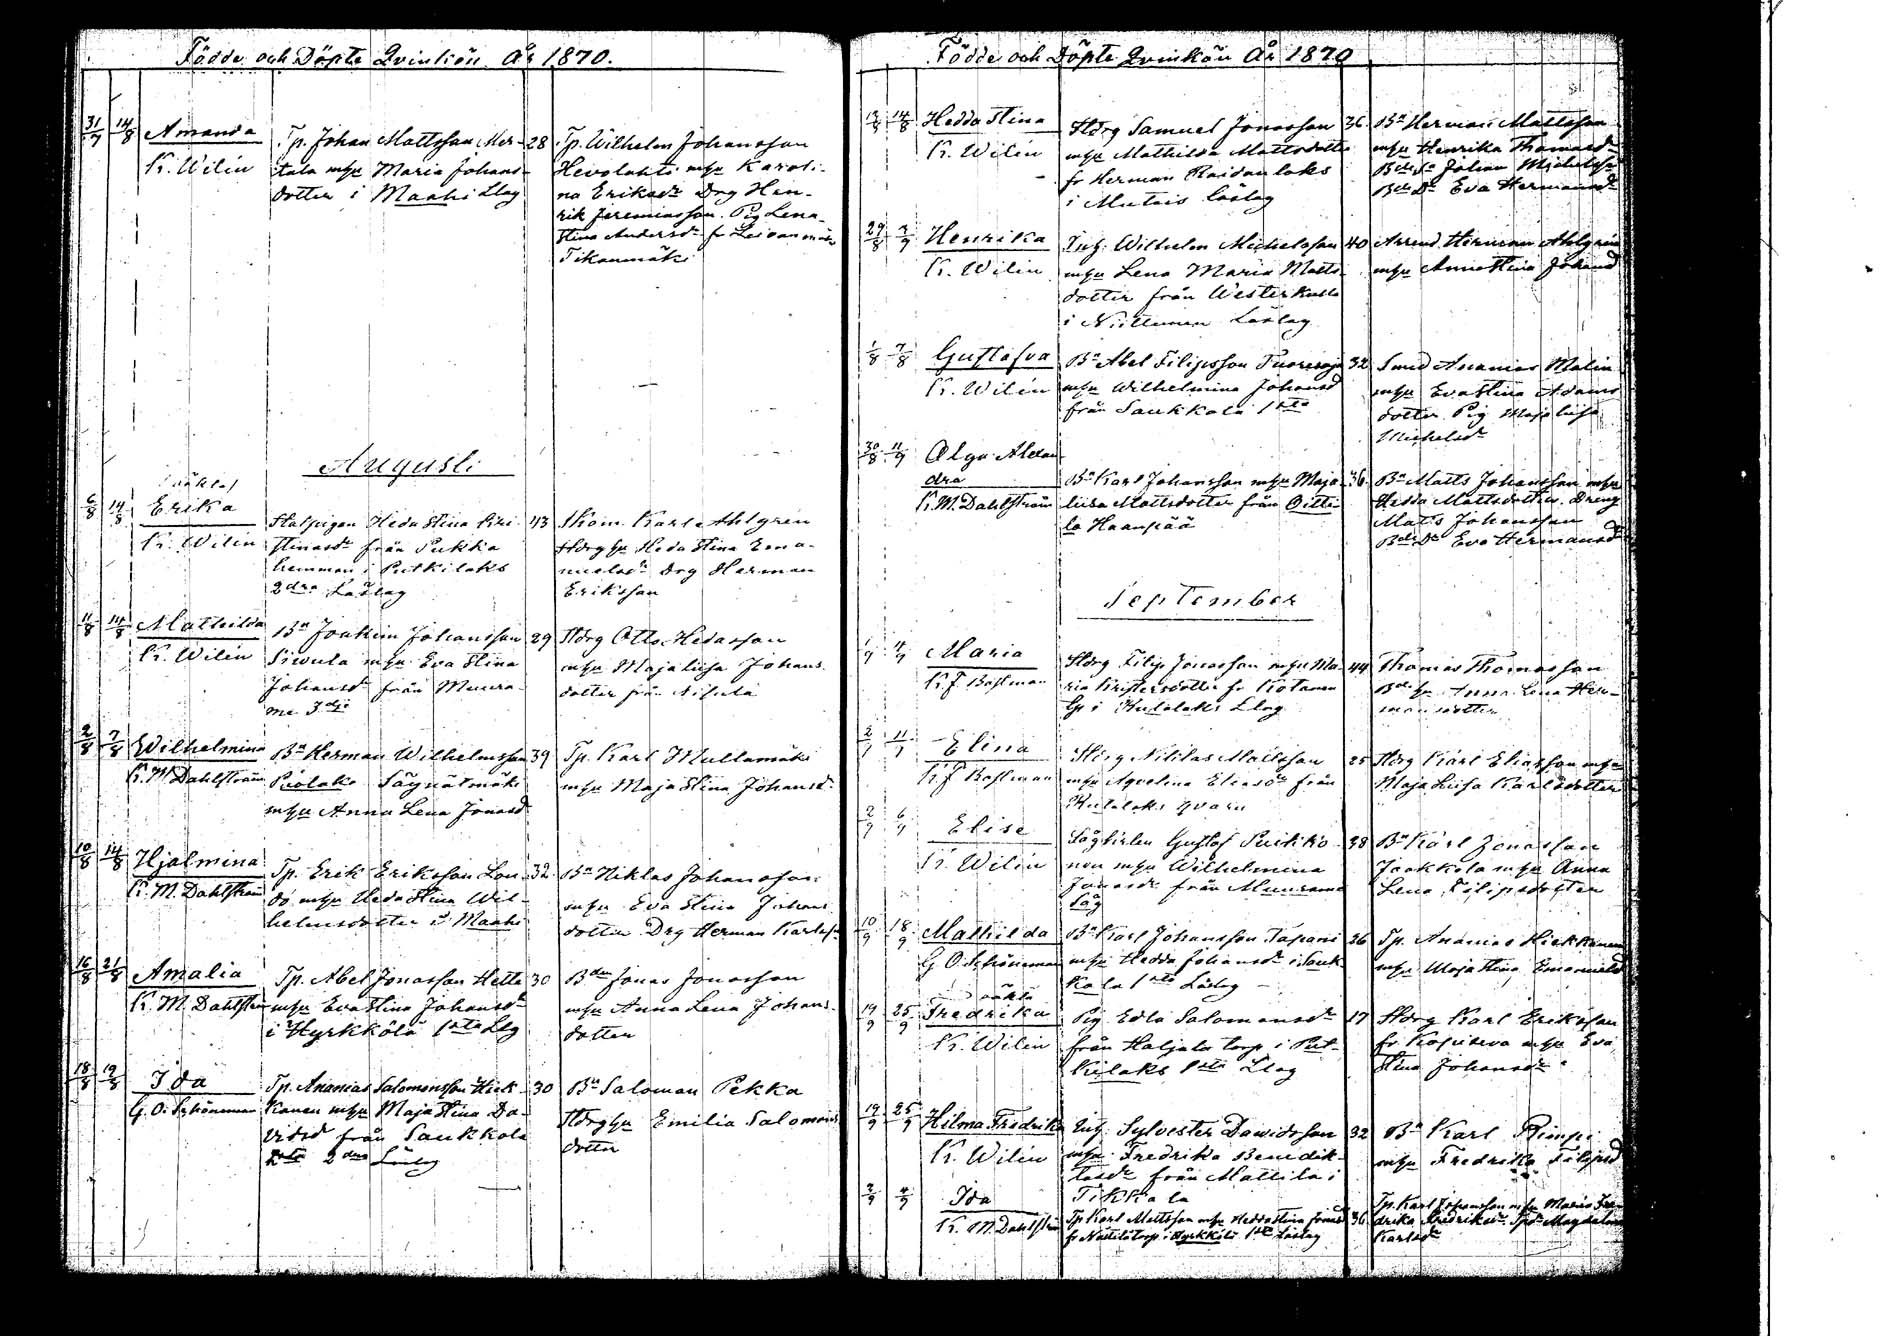 Födde och Döpte Qvinkön År 1870.
31/7 14/8 Amanda
K. Wilén
Tp. Johan Mattsson Mer-
tala mhu Maria Johans-
dotter i Maahi Llag
28
Tp. Wilhelm Johansson
Hevolahti mhu Karoli-
na Eriksdr Drg Hen-
rik Jeremiasson. Pig Lena
Stina Andersdr fr
Tikanmäki
Augusti
6/8 14/8 Erika
K. Wilén
Heda Stina
från Pukka
hemman i Putkilaks
2dra Läslag
43
Skom. Karl Ahlgren
Hdrg hu Heda Stina Ema-
nuelsdr Drg Herman
Eriksson
11/8 14/8 Mathilda
K. Wilén
Bn Joakim Johansson
Siwula mhu Eva Stina
Johansd från Muura-
me 3dje
29
Hdrg Otto Hedasson
mhu Maja Lisa Johans
dotter från
2/8 7/8 Wilhelmina
K. M. Dahlström
Bn Herman Wilhelmsson
Säynätmäki
mhu Anna Lena Jonasd
39
Tp. Karl Mullamäki
mhu Maja Stina Johansd.
10/8 14/8 Hjalmina
K. M. Dahlström
Tp. Erik Eriksson Lon-
dö mhu Heda Stina Wil-
helmsdotter i Maahi
32
Bn Niklas Johansson
mhu Eva Stina Johans
dotter Drg Herman Karlss
16/8 21/8 Amalia
K. M. Dahlström
Tp. Abel Jonasson Hette
mhu Eva Stina Johansdr
i Hyrkkölä 1sta Llg
30
Bden Jonas Jonasson
mhu Anna Lena Johans
dotter
18/8 19/8 Ida
G. O. Schöneman
Tp. Ananias Salomonsson Hiek-
kanen mhu Maja Stina Da-
vidsd från Saukkola
2dra Läslag
30
Bn Saloman Pekka
Hdrg hu Emilia Salomons
dotter
Födde och Döpte Qvinkön År 1870
13/8 14/8 Hedda Stina
K. Wilén
Hdrg Samuel Jonasson
mhu Mathilda Mattsdotter
fr Herman Raidanlaks
i Mutais Läslag
36
Bn Herman Mattsson
mhu Henrika Thomasdr
Bde So Johan Michelss
Bde Dr Eva Hermansdr
29/8 Henrika
K. Wilén
Inh. Wilhelm Michelsson
mhu Lena Maria Matts-
dotter från Westerkulla
i Niittunen Läslag
40
Arrend Herman Ahlgrén
mhu Anna Stina Johansd
1/8 7/8 Gustafva
K. Wilén
Bn Abel Filipsson Tuoresoja
mhu Wilhelmina Johansd
från Saukkola 1sta
32
Smed Ananias Malin
mhu Eva Stina Adams
dotter Pig Maja Lisa
Michelsdr
30/8 11/9 Olga Alexan-
dra
K. M. Dahlström
Bn Karl Johansson mhu Maja
Lisa Mattsdotter från Oitti-
la Haanpää
36
Bn Matts Johansson mhu
Hedda Mattsdotter. Dreng
Mats Johansson
Bde Dr Eva Hermansdr
September
1/9 4/9 Maria
K. F. Bastman
Hdrg Filip Jonasson mhu Ma-
ria Kristersdotter fr Kotanen
i Kutalaks Llag
44
Thomas Thomasson
Bde hu Anna Lena Her-
mansdotter
11/9 Elina
K. F. Bastman
Hdrg Niklas Mattsson
mhu Agvelina Eliasdr från
Kutalaks qvarn
25
Hdrg Karl Eliasson mhu
Maja Lisa Karlsdotter
2/9 6/9 Elise
K. Wilén
Gustaf Puikko-
nen mhu Wilhelmina
Jonasdr från Muurame
Såg
38
Bn Karl Jonasson
Jaakkola mhu Anna
Lena Filipsdotter
10/9 18/9 Mathilda
G. O. Schöneman
Bn Karl Johansson Tapani
mhu Hedda Johansdr i Sauk-
kola 1sta Läslag
26
Tp. Ananias Hiekkanen
mhu Maja Stina Emanuelsd
19/9 25/9 oäkta
Fredrika
K. Wilén
Pig Edla Salomonsdr
från Haljala torp i Put-
kilaks 1sta Llag
17
Hdrg Karl Eriksson
fr mhu Eva
Stina Johansdr
19/9 25/9 Hilma Fredrika
K. Wilén
Inh. Sylvester Davidsson
mhu Fredrika Benedik-
tasdr från Mattila i
Tikkala
32
Bn Karl Rimpi
mhu Fredrika Filipsd
2/9 4/9 Ida
K. M. Dahlström
Tp Karl Mattsson mhu Hedda Stina Jonasd
fr torp i Hyrkkölä 1sta Läslag
36
Tp. Karl Johansson mhu Maria Fre-
drika Fredriksdr. Magdalena
Karlsdr